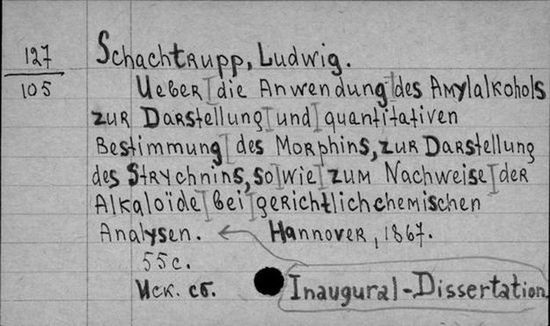 127
105
Schachtrupp, Ludwig.
Ueber die Anwendung des Amylalkohols
zur Darstellung und quantitativen
Bestimmung des Morphins, zur Darstellung
des Strychnins, sowie zum Nachweise der
Alkaloïde bei gerichtlichchemischen
Analysen. Hannover, 1867.
55c.
Иск. сб. Inaugural-Dissertation